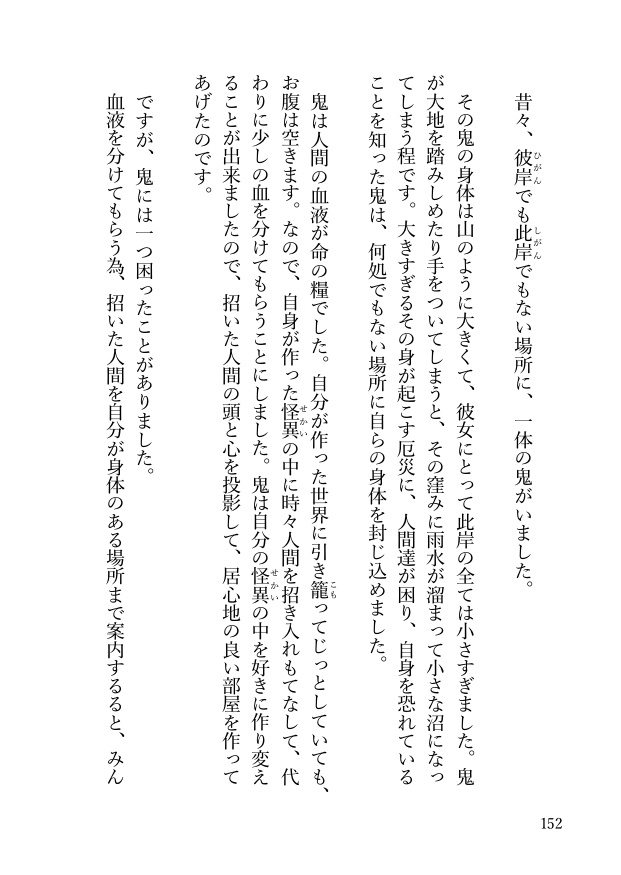 昔々、彼岸でも此岸でもない場所に、一体の鬼がいました。
その鬼の身体は山のように大きくて、彼女にとって此岸の全ては小さすぎました。鬼
が大地を踏みしめたり手をついてしまうと、その窪みに雨水が溜まって小さな沼になっ
てしまう程です。大きすぎるその身が起こす厄災に、人間達が困り、自身を恐れている
ことを知った鬼は、何処でもない場所に自らの身体を封じ込めました。
鬼は人間の血液が命の糧でした。自分が作った世界に引き籠ってじっとしていても、
お腹は空きます。なので、自身が作った怪異の中に時々人間を招き入れもてなして、代
わりに少しの血を分けてもらうことにしました。鬼は自分の怪異の中を好きに作り変え
ることが出来ましたので、招いた人間の頭と心を投影して、居心地の良い部屋を作って
あげたのです。
ですが、鬼には一つ困ったことがありました。
血液を分けてもらう為、招いた人間を自分が身体のある場所まで案内するると、みん
152